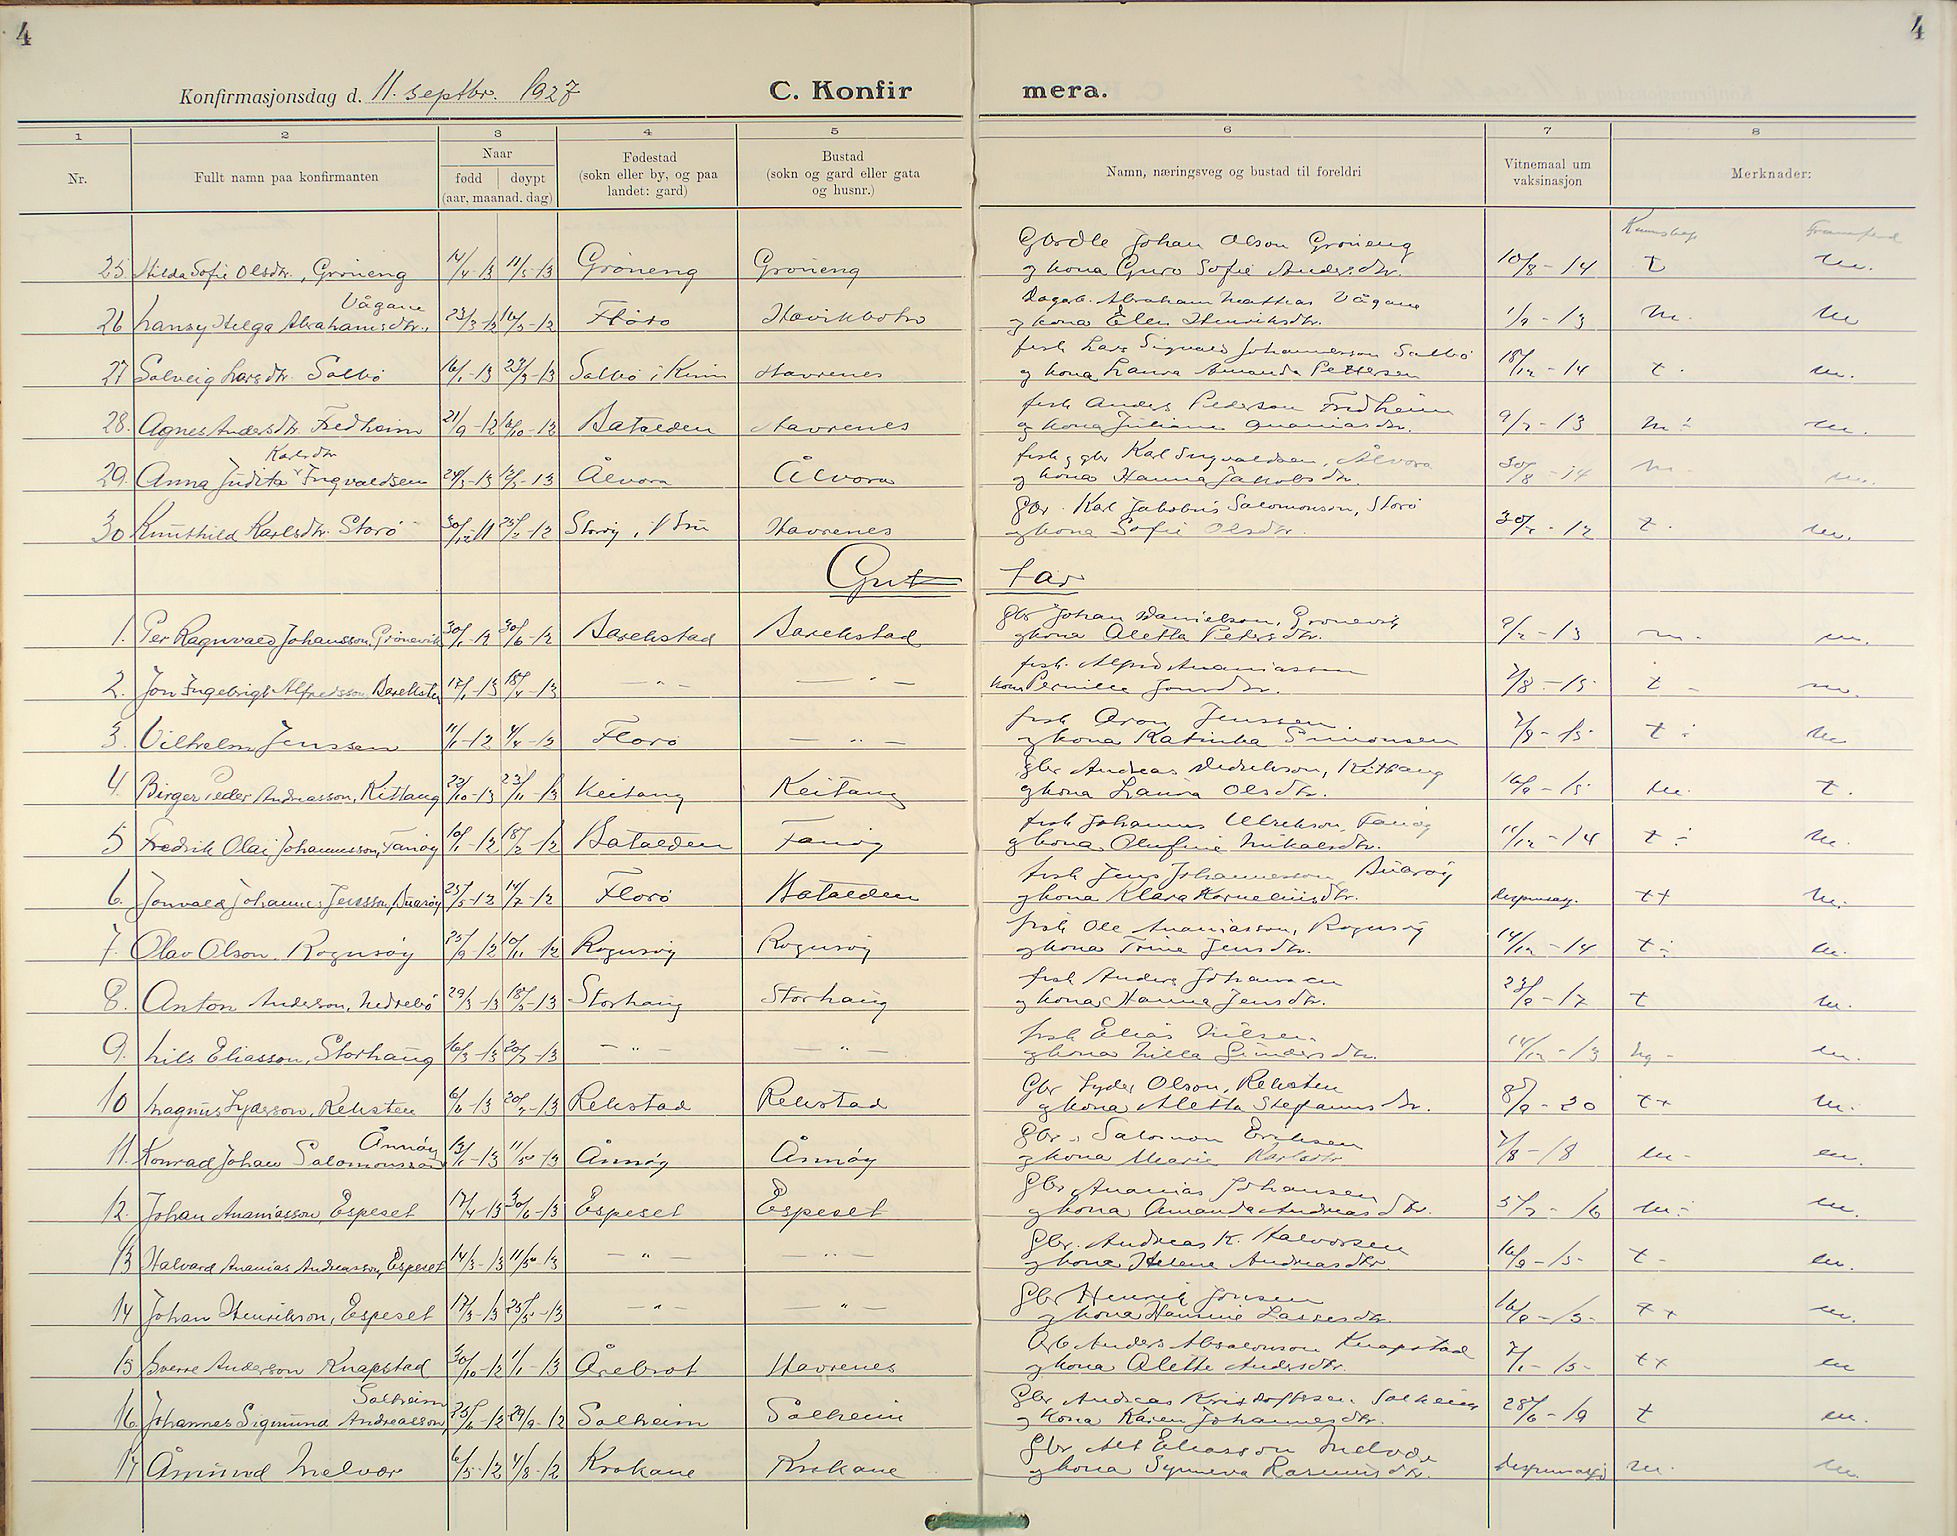 4
4
Konfirmasjonsdag d. 11. septbr. 1927
C. Konfir
mera.
1 2 3 4 5 6 7 8
Nr.
Fullt namn paa konfirmanten
Naar
født døypt
(aar, maanad, dag)
Fødestad
(sokn eller by, og paa
landet: gard)
Bustad
(sokn og gard eller gata
og husnr.)
Namn, næringsveg og bustad til foreldri
Vitnemaal um
vaksinasjon
Merknader:
Gbr Johan Olson Grøneng
25. Hilda Sofie Olsdtr., Grøneng 14/4-13 11/5-13 Grøneng Grøneng og kona Guro Sofie Andersdtr. 10/8-14 t m.
Vågane Dagarb. Abraham Mathias Vågane
26 Nansy Helga Abrahamsdtr. Florø og kona Elen Henriksdtr. 1/9-13 m. m
fisk Lars Sigvald Johannesson Salbø
27 Solveig Larsdtr. Salbø 16/1-13 23/3-13 Salbø i Kinn Havrenes og kona Laura Amanda Pettersen 18/12-14 t. m.
fisk Anders Pederson Fredheim
28. Agnes Andersdtr. Fredheim 21/9-12 16/10-12 Batalden Havrenes og kona Juliane Ananiasdtr. 9/7-13 m÷ m.
Karlsdtr fisk og gbr Karl Ingvaldsen, Ålvora
29. Anna Judita Ingvaldsen Ålvora Ålvora og kona Hanna Jakobsdtr. 30/8-14 m. m.
Gbr. Karl Jakobus Salomonson, Storø
30 Knuthild Karlsdtr. Storø 30/12-11 Havrenes og kona Sofie Olsdtr. t. m.
Gut tar
gbr Johan Danielson, Grønevik
1. Per Ragnvald Johansson, Grønevik 30/1-12 30/6-12 Barekstad Barekstad og kona Aletta Petersdtr. 9/7-13 m. m.
fisk. Alfred Ananiassen
2. Jon Ingebrigt Alfredsson, Barekstad 17/1-13 18/4-13 — „ — — „ — kona Pernille Jonsdtr. 7/8-15 t - m.
fisk Aron Jenssen.
3. Vilhelm Jenssen 11/1-12 4/4-12 Florø — „ — og kona Katinka Simonsen 7/8-15 t÷ m
gbr Andreas Didrikson, Kittang
4. Birger Peder Andreasson, Kittang 22/10-13 23/11-13 Keitang Keitang og kona Laura Olsdtr. 16/9-15 m. t.
fisk Johannes Ulrikson, Fanøy
5 Fredrik Olai Johannesson, Fanøy 10/1-12 18/2-12 Batalden Fanøy og kona Olufine Mikalsdtr. 11/12-14 t÷ m.
fisk Jens Johannesson, Buarøy
6. Jonvald Johannes Jensson, Buarøy 25/5-12 14/7-12 Florø Batalden og kona Klara Korneliusdtr. dispensasj. tt m.
fisk Ole Ananiasson, Rognsøy
7. Olav Olson, Rognsøy 25/9-12 10/11-12 Rognsøy Rognsøy og kona Trine Jensdtr. 14/12-14 t÷ m.
fisk Anders Johansen
8. Anton Anderson, Nedrebø 29/3-13 18/5-13 Storhaug Storhaug og kona Hanna Jensdtr. 23/9-17 t m.
fisk Elias Nilsen.
9. Nils Eliasson, Storhaug 16/3-13 20/7-13 — „ — — „ — og kona Nilla Gundersdtr. 14/12-13 m.
Gbr Lyder Olson, Reksten
10 Magnus Lyderson, Reksten 6/6-13 20/7-13 Rekstad Rekstad og kona Aletta Stefanusdtr. 8/9-20 tt m.
Ånnøy Gbr. Salomon Eriksen
11. Konrad Johan Salomonsson 13/1-13 11/5-13 Ånnøy Ånnøy og kona Marie Karlsdtr 7/8-18 m- m.
Gbr Ananias Johansen
12. Johan Ananiasson, Espeset 17/4-13 30/6-13 Espeset Espeset og kona Amanda Andreasdtr. 5/7-16 m÷ m.
Gbr. Andreas K. Halvorsen
13 Halvard Ananias Andreasson, Espeset 14/3-13 11/5-13 — „ — — „ — og kona Helene Andreasdtr. 16/9-15- t- m.
Gbr Henrik Jonsen
14 Johan Henrikson, Espeset 17/3-13 25/5-13 — „ — — „ — og kona Hansine Lassesdtr. 16/9-15- tt m.
Arb Anders Absalonson Knapstad
15 Sverre Anderson Knapstad 30/10-12 1/1-13 Årebrot Havrenes og kona Alette Andersdtr 7/1-15- tt m
Solheim Gbr Andreas Kristoffersen Solheim
16. Johannes Sigmund Andreasson, 25/6-12 29/9-12 Solheim Solheim og kona Karen Johannesdtr. 28/6-19 t m.
Gbr Alf Eliasson Indvær
17 Åmund Melvær 6/5-12 4/8-12 Krokane Krokane og kona Synneva Rasmusdtr. dispensasj m. m.